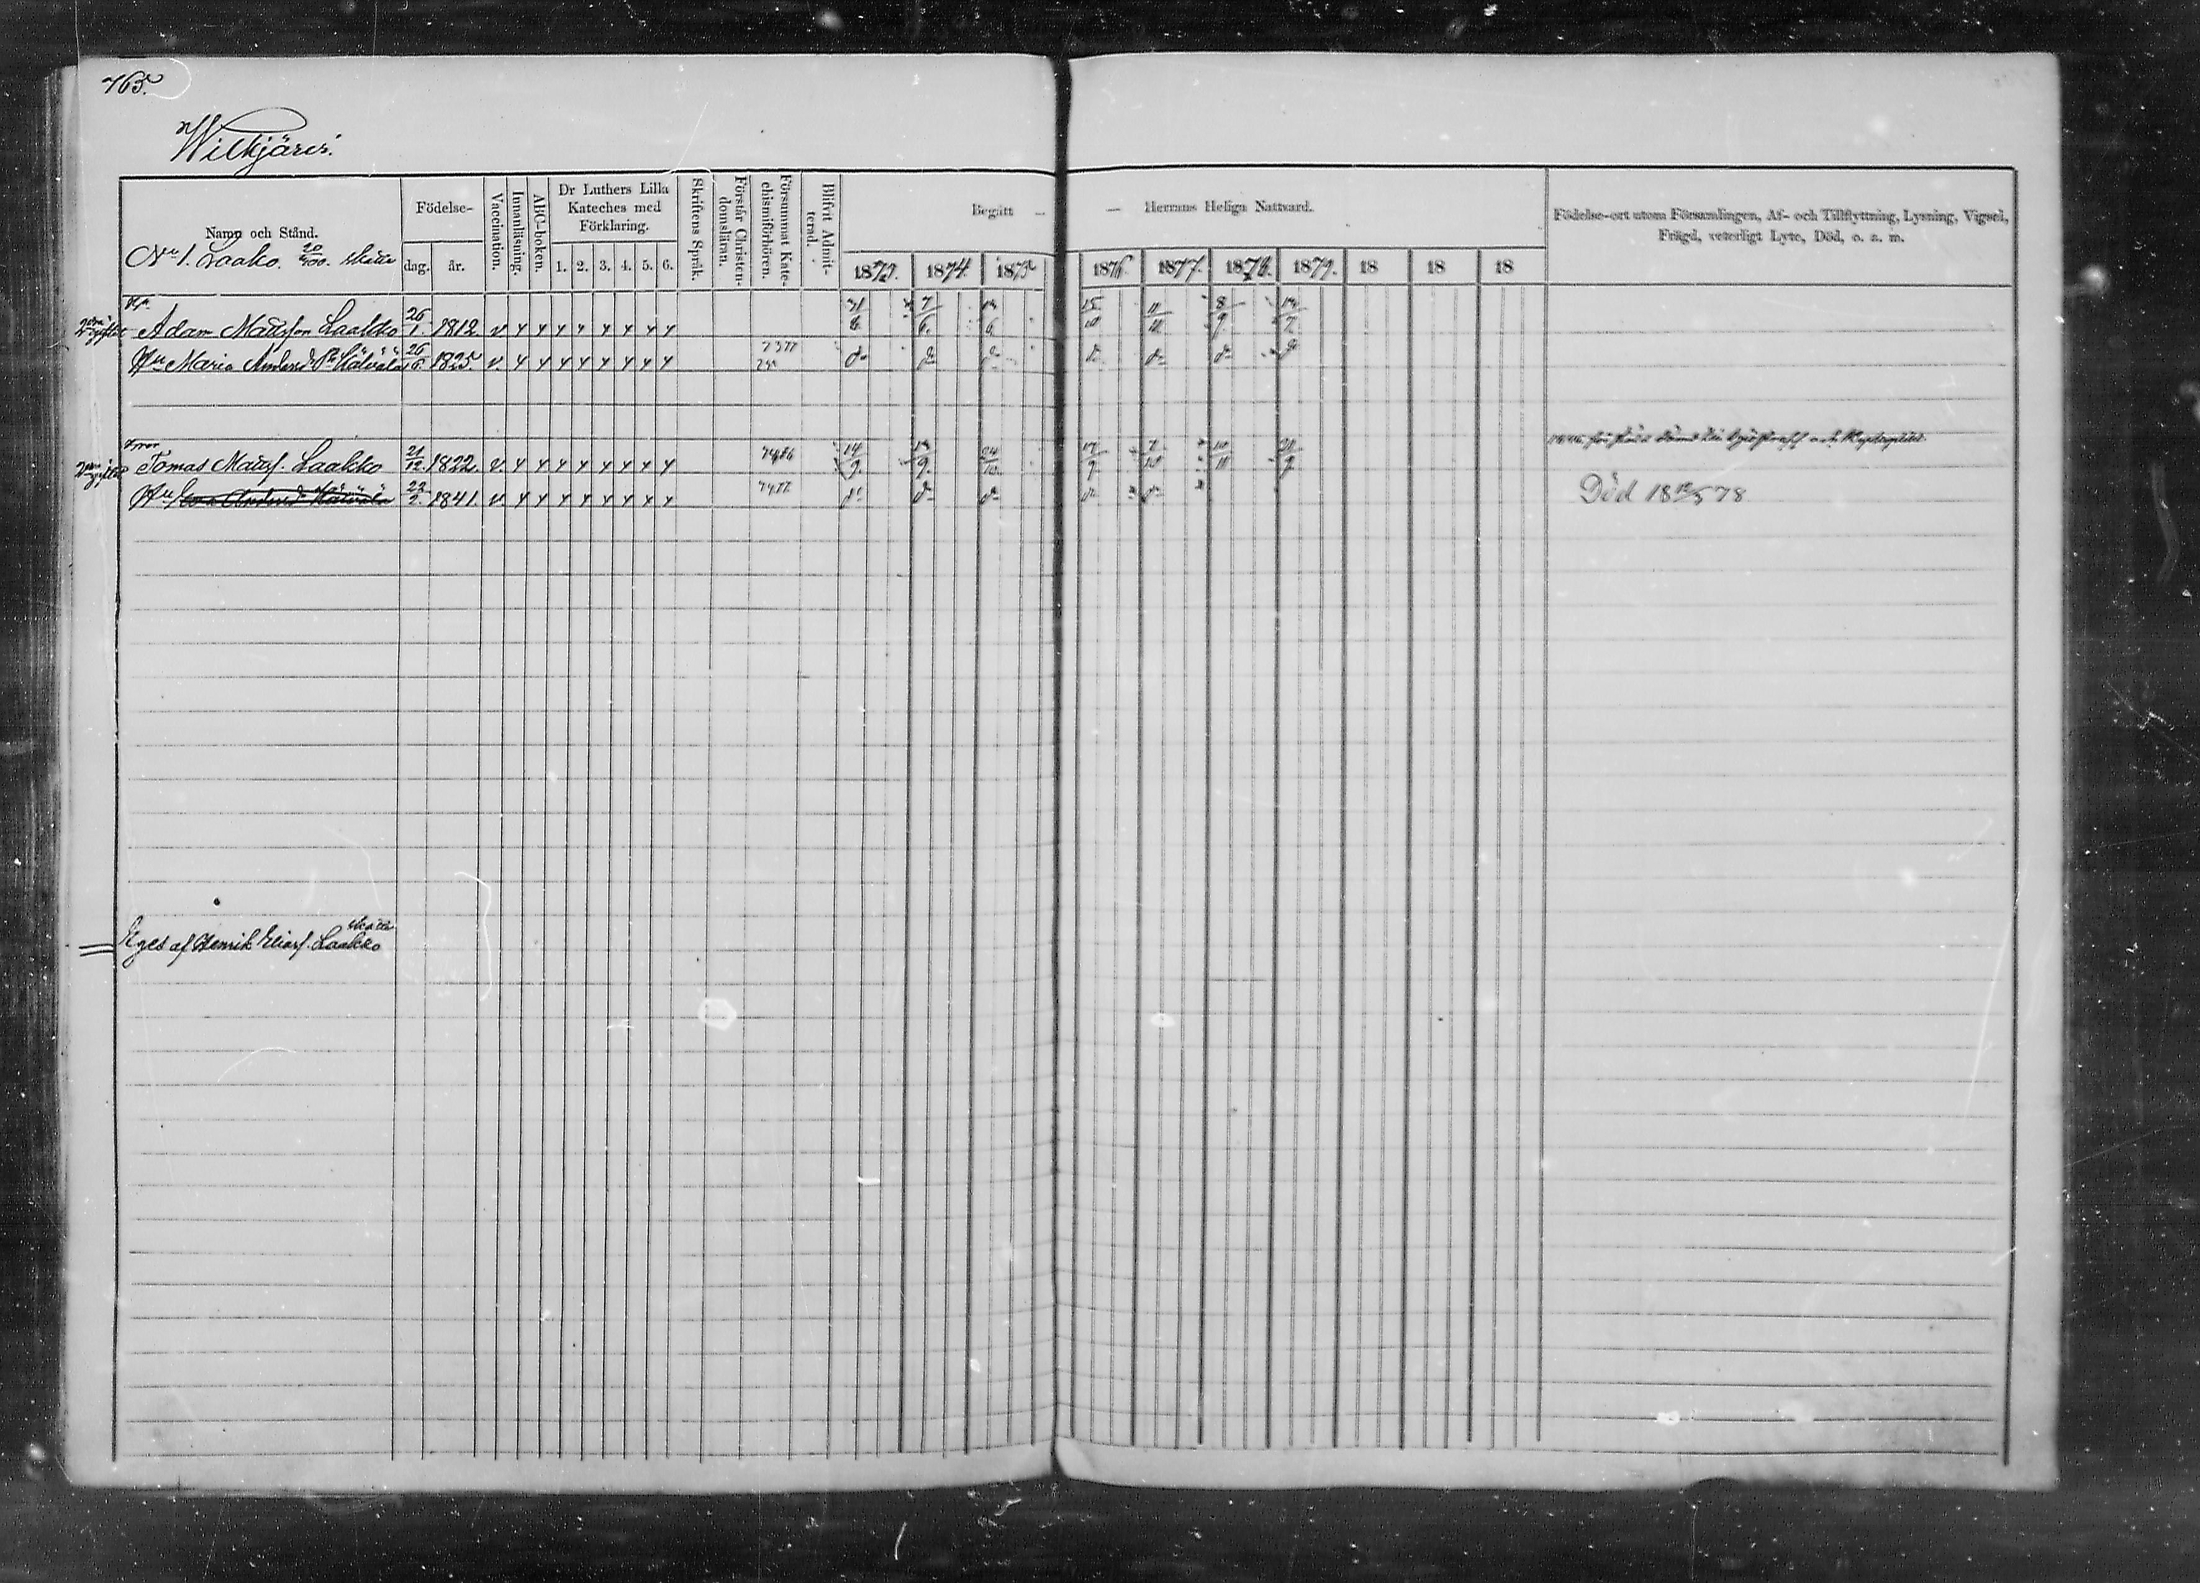 765.
Wilkjärvi.
Namn och Stånd.
Födelse-
dag.
år.
Vaccination.
Innanläsning.
ABC-boken.
Dr Luthers Lilla
Kateches med
Förklaring.
1. 2. 3. 4. 5. 6.
Skriftens Språk.
Förstår Christen-
domsläran.
Försummat Kate-
chismiförhören.
Blifvit Admit-
terad.
Begått — — Herrans Heliga Nattvard.
1873. 1874. 1875 1876. 1877. 1878. 1879. 18 18 18
Födelse-ort utom Församlingen, Af- och Tillflyttning, Lysning, Vigsel,
Frägd, veterligt Lyte, Död, o. s. m.
No 1. Laako. 20/400. skatte
Adam Mattsson Laakko 26/1. 1812 v y y y y y y y y 31/8. 7/6. 15/10 11/11
Hu Maria Andersd:r Hälvälä 26/6. 1825. v. y y y y y y y y 73 77 do do do do do do do
Tomas Mattss. Laakko 21/12. 1822. v. y y y y y y y y 14/9. 24/10.
Hu Eva Andersd:r Hälvälä 22/2. 1841. v. y y y y y y y y 74 77 do do do do do Död 18 12/5 78
Eges af Henrik Eliass. Laakko